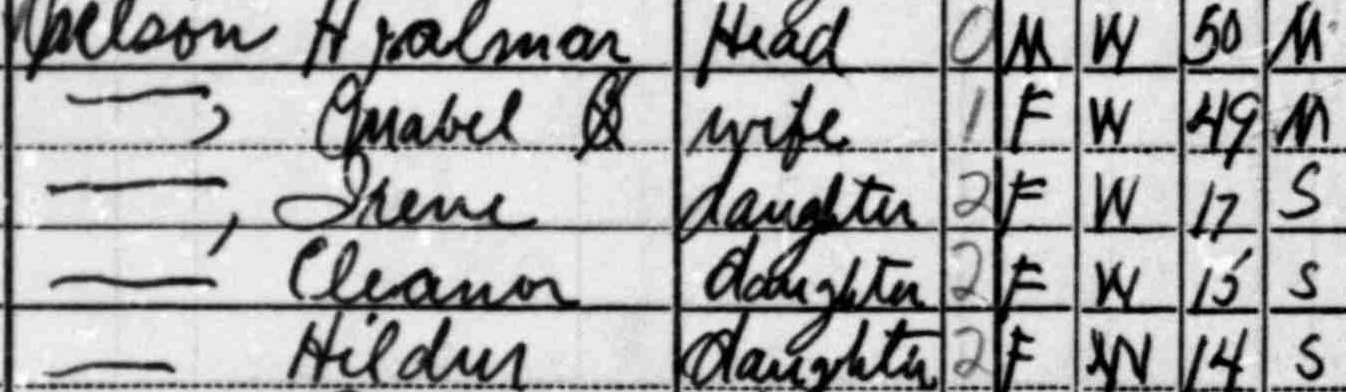 Nelson Hjalmar Head 0 M W 50 M
——, Mabel wife 1 F W 49 M
——, Irene daughter 2 F W 17 S
—— Eleanor daughter 2 F W 15 S
—— Hildur daughter 2 F W 14 S